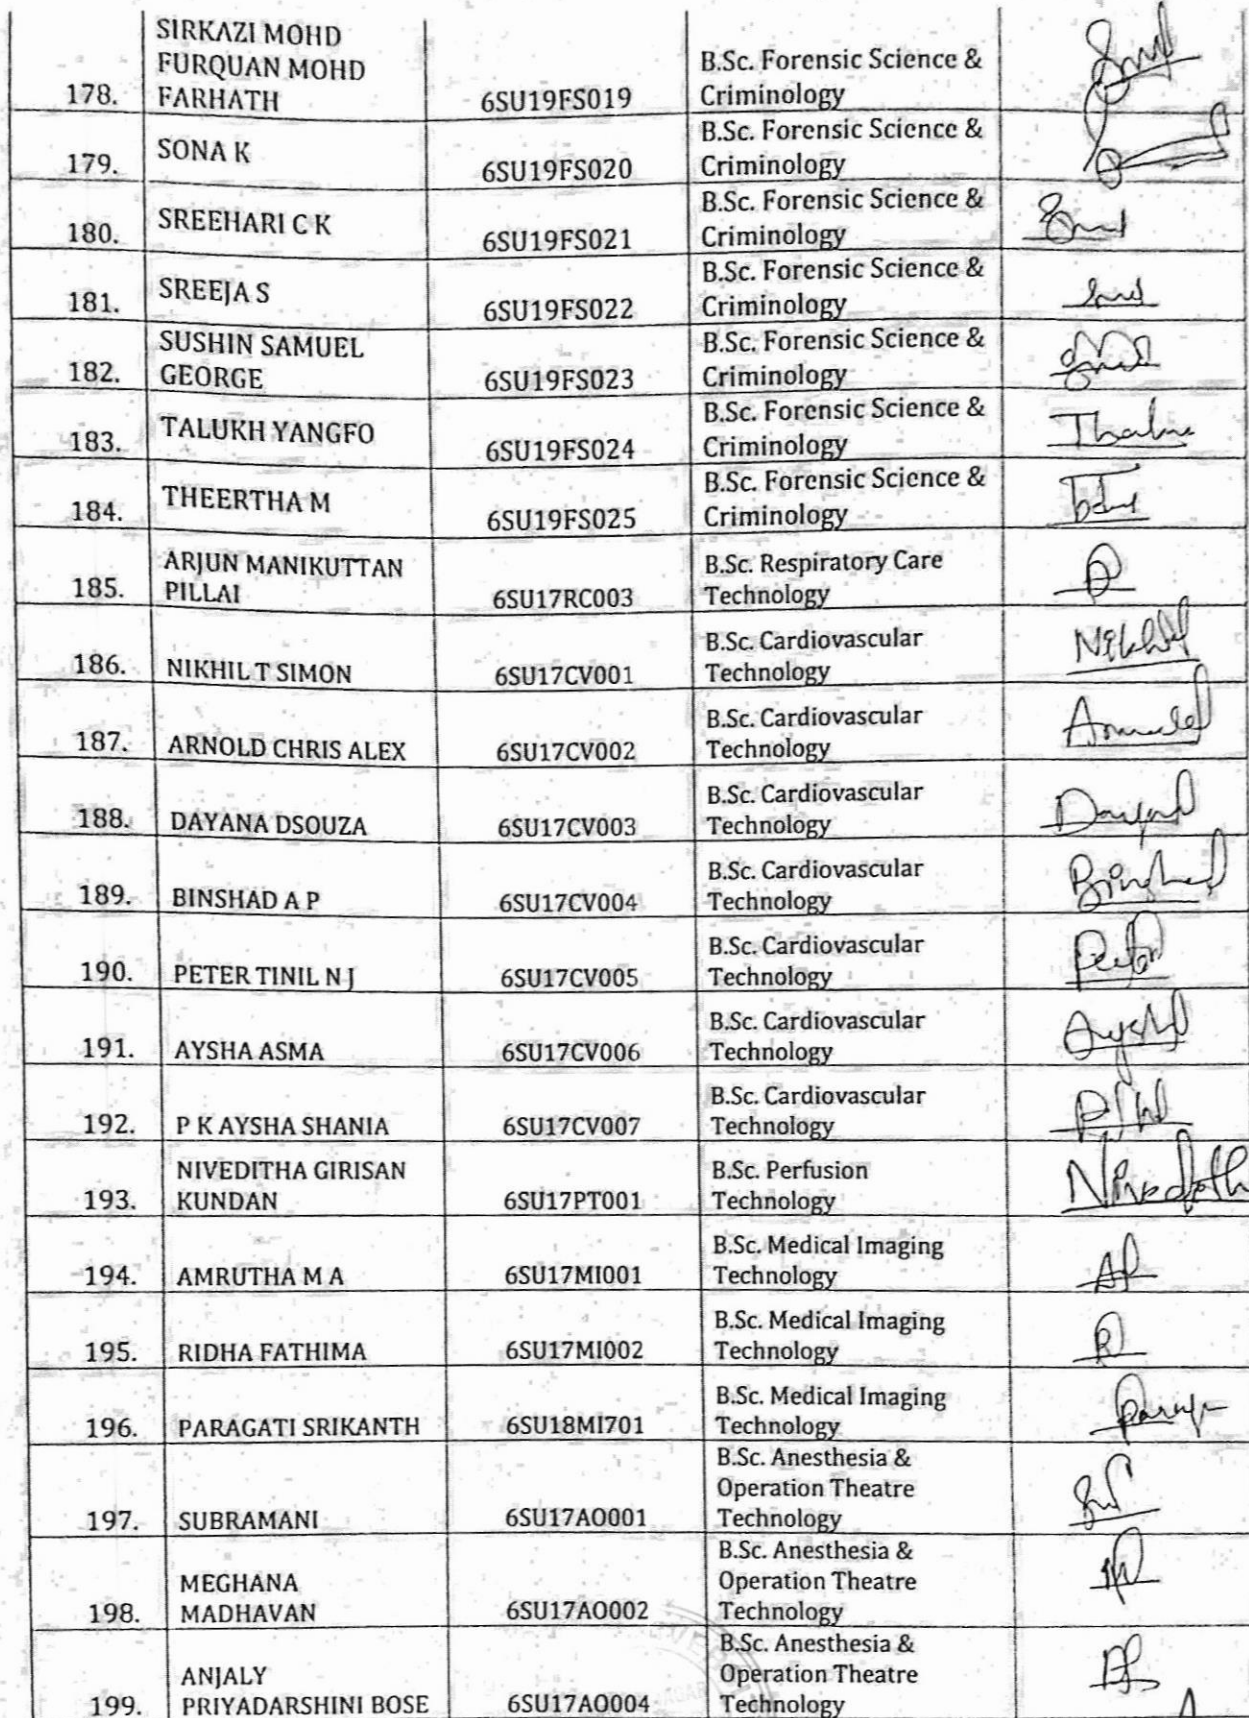 SIRKAZI MOHD
FURQUAN MOHD
178. FARHATH 6SU19FS019 B.Sc. Forensic Science &
Criminology
179. SONA K 6SU19FS020 B.Sc. Forensic Science &
Criminology
180. SREEHARI C K 6SU19FS021 B.Sc. Forensic Science &
Criminology
181. SREEJA S 6SU19FS022 B.Sc. Forensic Science &
Criminology
SUSHIN SAMUEL
182. GEORGE 6SU19FS023 B.Sc. Forensic Science &
Criminology
183. TALUKH YANGFO 6SU19FS024 B.Sc. Forensic Science &
Criminology
184. THEERTHA M 6SU19FS025 B.Sc. Forensic Science &
Criminology
ARJUN MANIKUTTAN
185. PILLAI 6SU17RC003 B.Sc. Respiratory Care
Technology
186. NIKHIL T SIMON 6SU17CV001 B.Sc. Cardiovascular
Technology Nikhil
187. ARNOLD CHRIS ALEX 6SU17CV002 B.Sc. Cardiovascular
Technology
188. DAYANA DSOUZA 6SU17CV003 B.Sc. Cardiovascular
Technology
189. BINSHAD A P 6SU17CV004 B.Sc. Cardiovascular
Technology
190. PETER TINIL N J 6SU17CV005 B.Sc. Cardiovascular
Technology
191. AYSHA ASMA 6SU17CV006 B.Sc. Cardiovascular
Technology
192. P K AYSHA SHANIA 6SU17CV007 B.Sc. Cardiovascular
Technology
NIVEDITHA GIRISAN
193. KUNDAN 6SU17PT001 B.Sc. Perfusion
Technology
194. AMRUTHA M A 6SU17MI001 B.Sc. Medical Imaging
Technology
195. RIDHA FATHIMA 6SU17MI002 B.Sc. Medical Imaging
Technology
196. PARAGATI SRIKANTH 6SU18MI701 B.Sc. Medical Imaging
Technology
197. SUBRAMANI 6SU17AO001 B.Sc. Anesthesia &
Operation Theatre
Technology
MEGHANA
198. MADHAVAN 6SU17AO002 B.Sc. Anesthesia &
Operation Theatre
Technology
ANJALY
199. PRIYADARSHINI BOSE 6SU17AO004 B.Sc. Anesthesia &
Operation Theatre
Technology